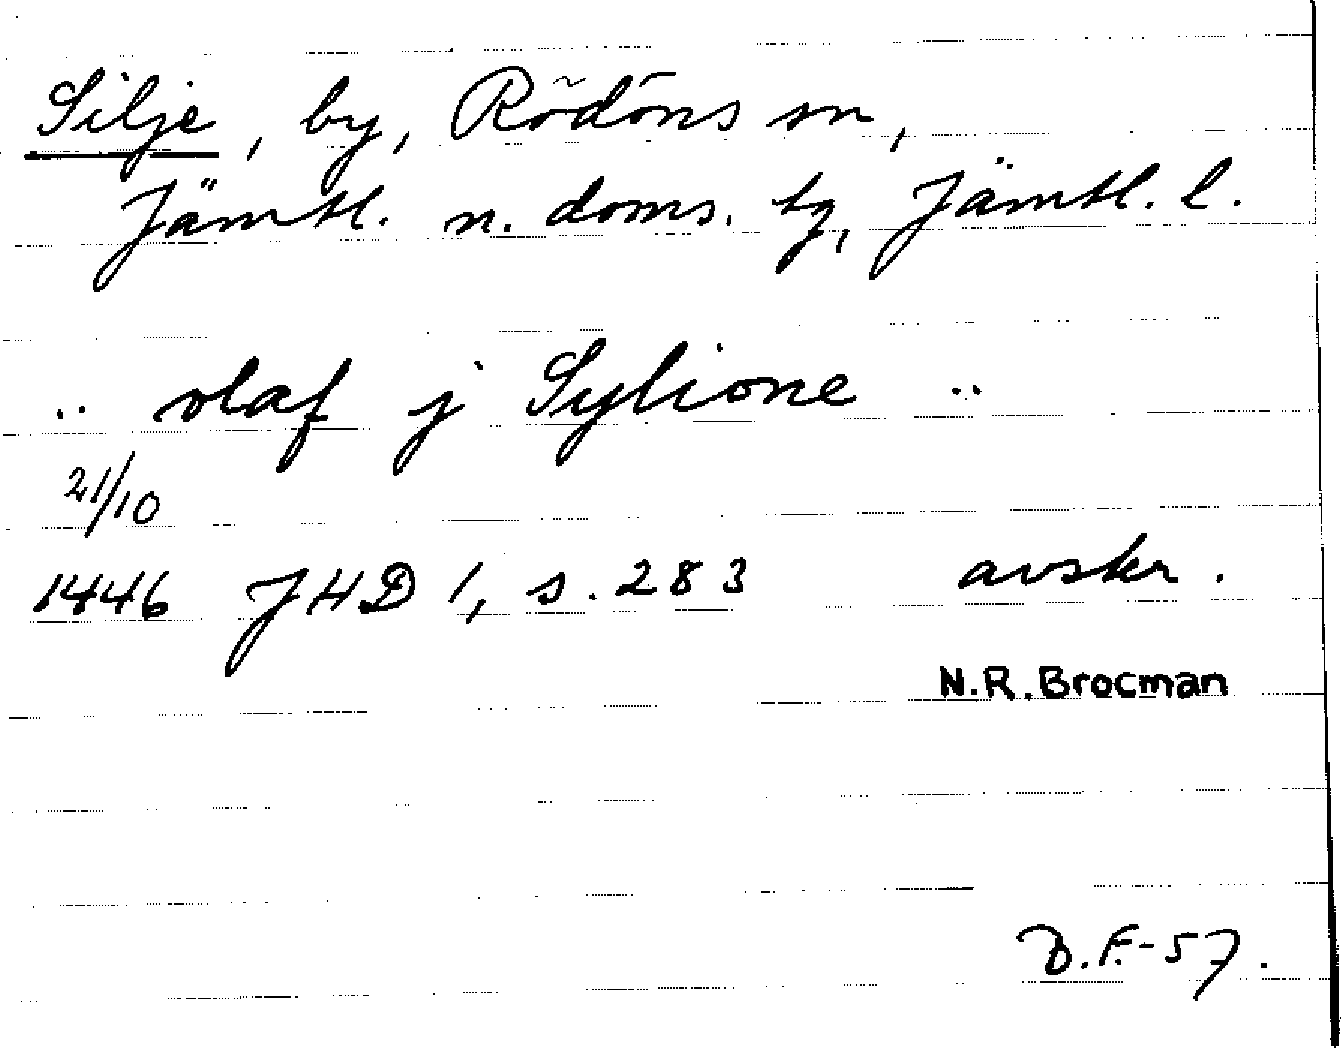 Silje, by, Rödöns sn,
Jämtl. n. doms. tg, Jämtl. l.
.. olaf j Sylione ..
21/10
1446 JHD 1, s. 283 avskr.
N.R. Brocman
D.F.-57.